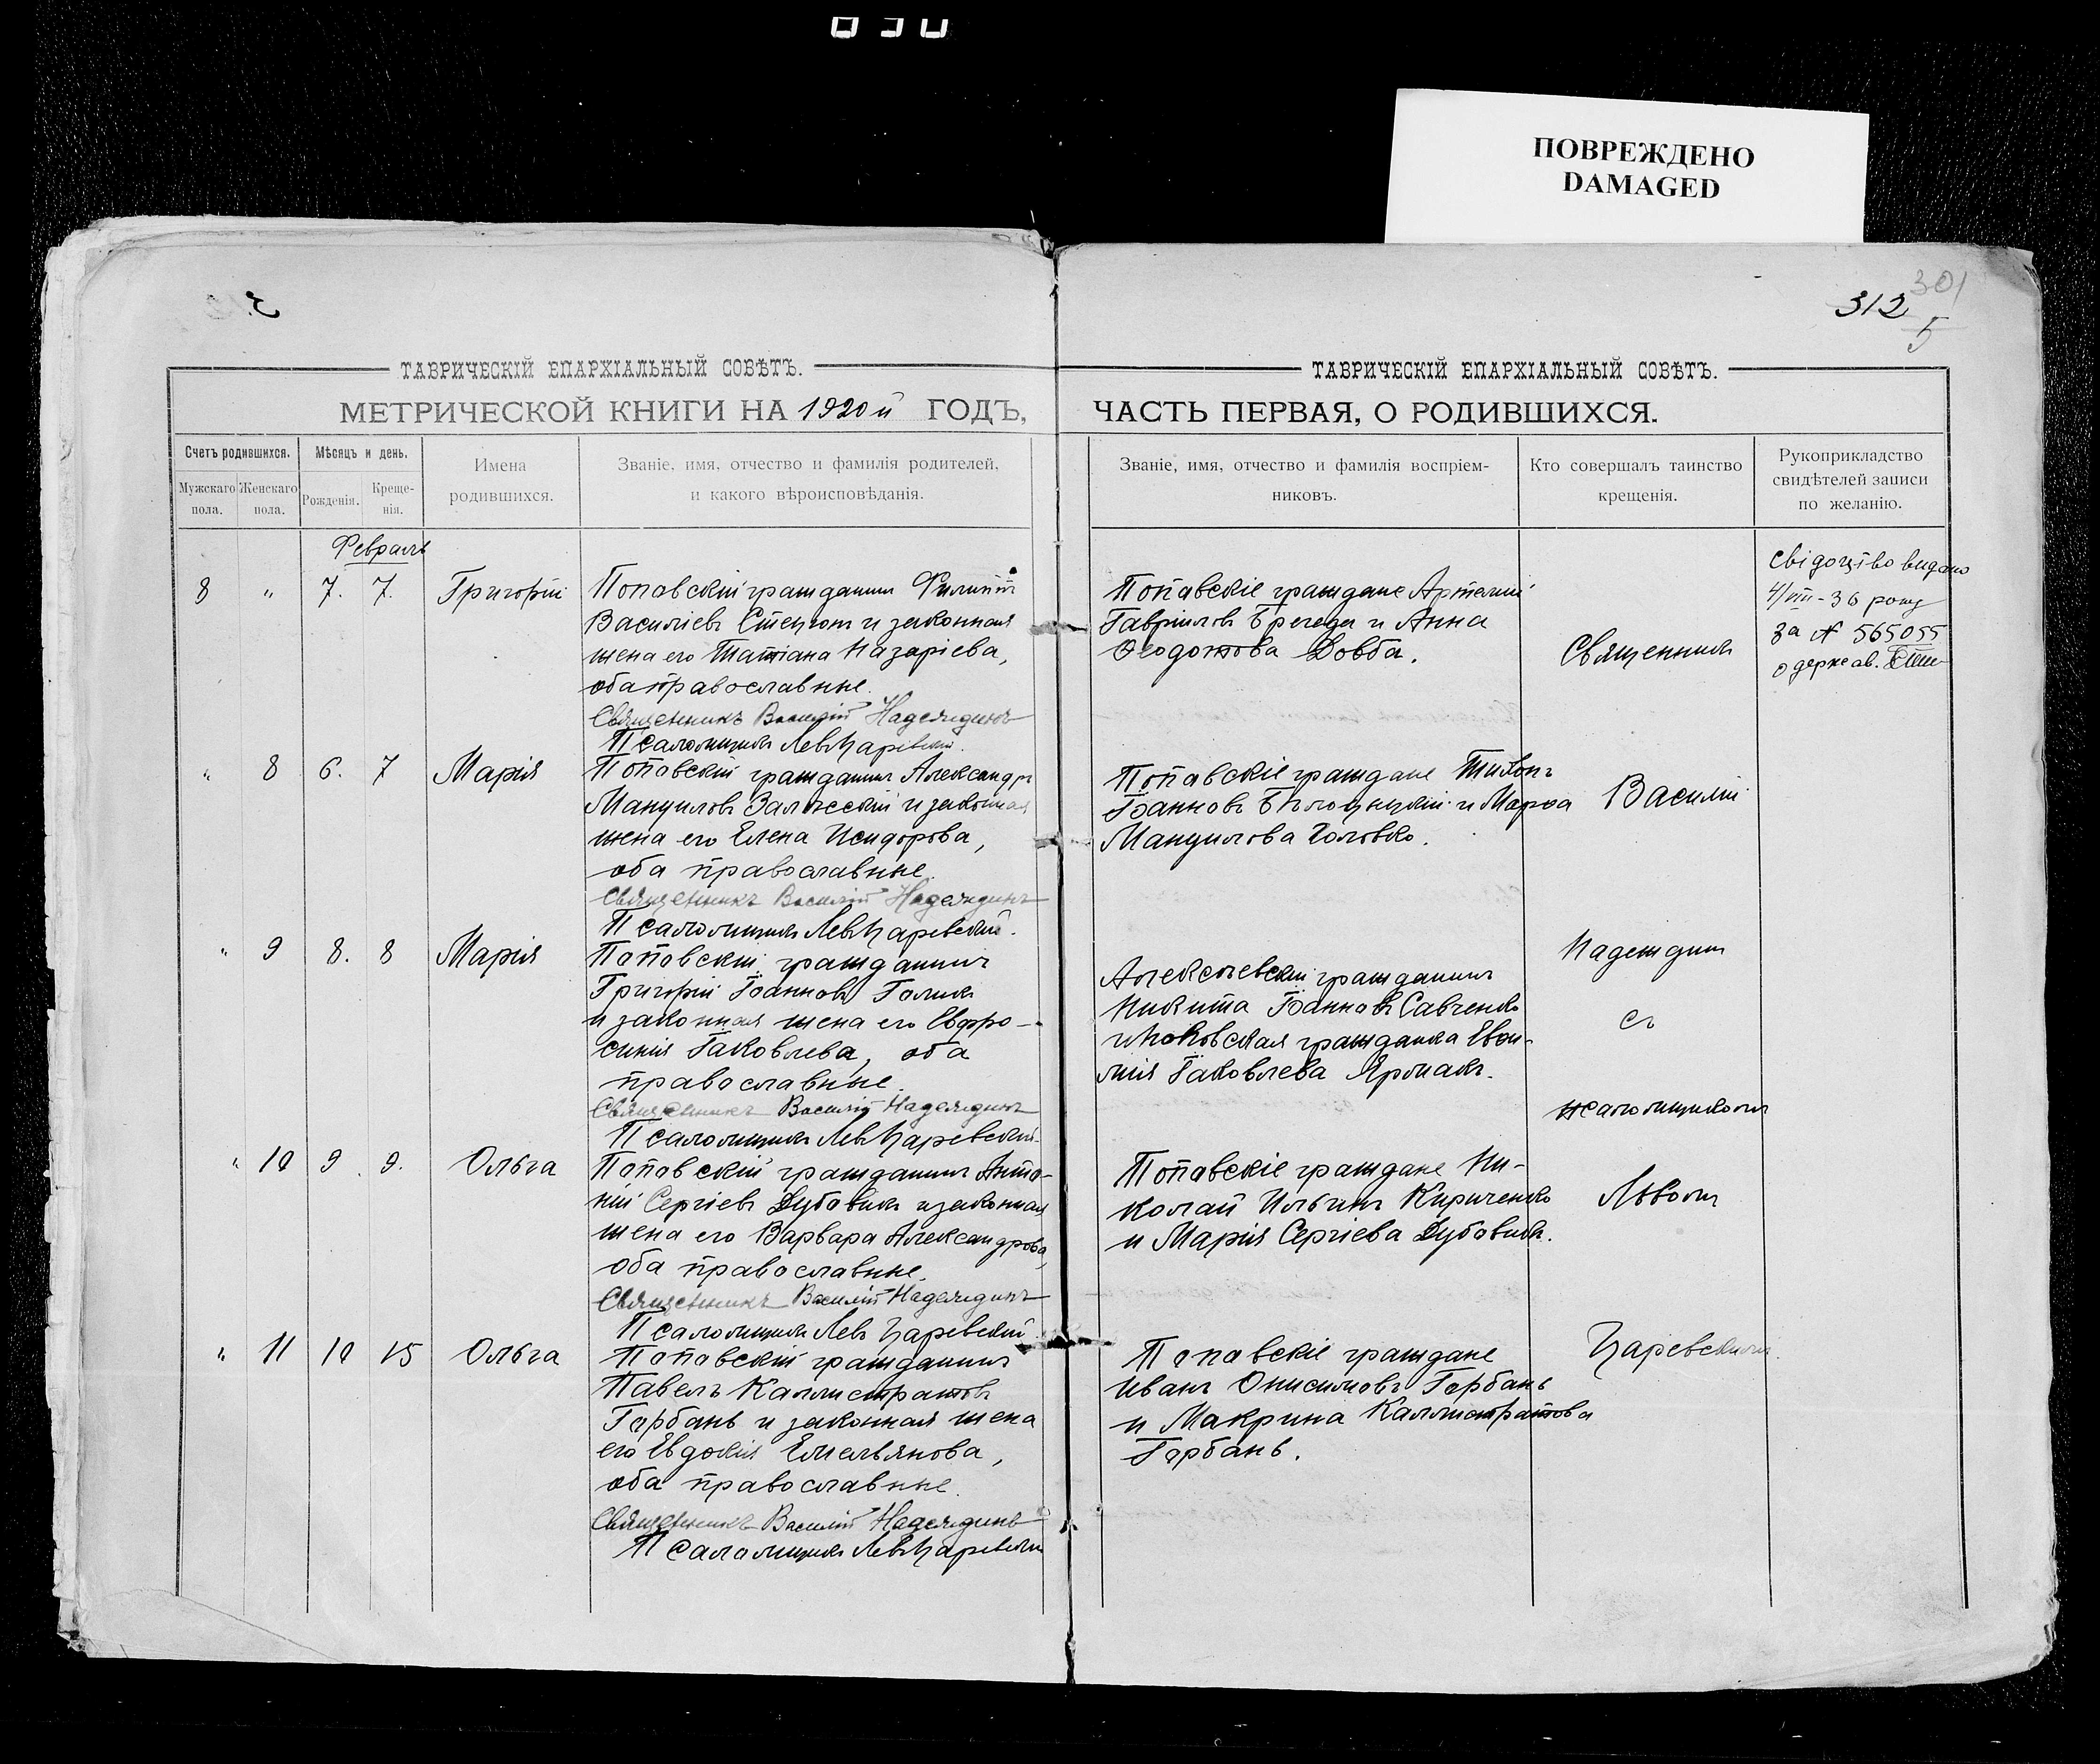 ПОВРЕЖДЕНО
DAMAGED
301
312
5
ТАВРИЧЕСКІЙ ЕПАРХІАЛЬНЫЙ СОВѢТЪ.
МЕТРИЧЕСКОЙ КНИГИ НА 1920й ГОДЪ,
Счетъ родившихся.
Мужскаго пола.
Женскаго пола.
Мѣсяцъ и день.
Рожденія.
Креще-
нія.
Имена
родившихся.
Званіе, имя, отчество и фамилія родителей,
и какого вѣроисповѣданія.
Февраль
8 " 7. 7. Григорій
Поповскій гражданинъ Филиппъ
Василіевъ и законная
жена его Татіана Назаріева,
оба православные.
Священникъ Василій Надеждинъ
Псаломщикъ Левъ Царевскій.
" 8 6. 7 Марія
Поповскій гражданинъ Александръ
Мануиловъ Залѣсскій и законная
жена его Елена Исидорова,
оба православные.
Священникъ Василій Надеждинъ
Псаломщикъ Левъ Царевскій.
" 9 8. 8 Марія
Поповскій гражданинъ
Григорій Іоанновъ Голикъ
и законная жена его Евфро-
синія Іаковлева, оба
православные.
Священникъ Василій Надеждинъ
Псаломщикъ Левъ Царевскій.
" 10 9 9. Ольга
Поповскій гражданинъ Анто-
ній Сергіевъ Дубовикъ и законная
жена его Варвара Александрова,
оба православные.
Священникъ Василій Надеждинъ
Псаломщикъ Левъ Царевскій
" 11 10 15 Ольга
Поповскій гражданинъ
Павелъ Каллистратовъ
Горбань и законная жена
его Евдокія Емельянова,
оба православные.
Священникъ Василій Надеждинъ
Псаломщикъ Левъ Царевскій
ТАВРИЧЕСКІЙ ЕПАРХІАЛЬНЫЙ СОВѢТЪ.
ЧАСТЬ ПЕРВАЯ, О РОДИВШИХСЯ.
Званіе, имя, отчество и фамилія воспріем-
никовъ.
Кто совершалъ таинство
крещенія.
Рукоприкладство
свидѣтелей записи
по желанію.
Поповскіе граждане Артемій
Гавріиловъ и Анна
Ѳеодотова Довба.
Поповскіе граждане Тихонъ
Іоанновъ и Марѳа
Мануилова Головко.
Алексѣевскій гражданинъ
Никита Іоанновъ Савченко
и Поповская гражданка Евѳи-
мія Іаковлева Ярмакъ.
Поповскіе граждане Ни-
колай Ильинъ Кириченко
и Марія Сергіева Дубовикъ.
Поповскіе граждане
Иванъ Онисимовъ Горбань
и Макрина Каллистратова
Горбань.
Священникъ
Василій
Надеждинъ
съ
псаломщикомъ
Львомъ
Царевскимъ.
Свідоцтво видано
4/VIII-36 року
за № 565055
одержав.